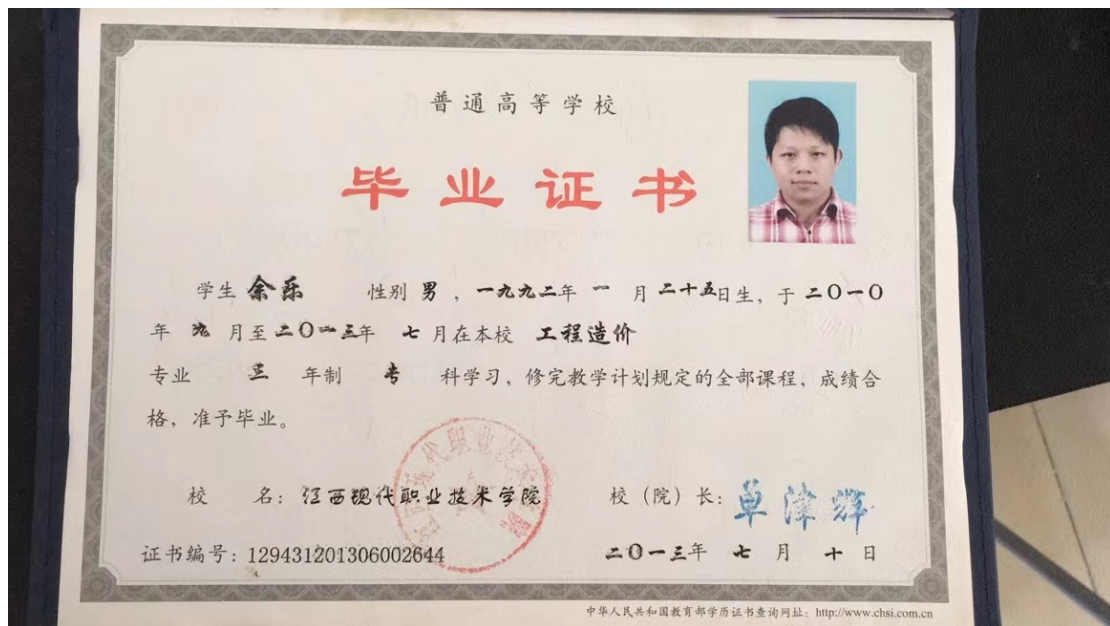 普通高等学校
毕业证书
学生 余乐 性别 男 ，一九九二年 一 月 二十五日生，于 二〇一〇
年 九 月至 二〇一三年 七 月在本校 工程造价
专业 三 年制 专 科学习，修完教学计划规定的全部课程，成绩合
格，准予毕业。
江西现代职业技术学院
校 名：江西现代职业技术学院 校（院）长：卓津辉
证书编号：129431201306002644 二〇一三年 七 月 十 日
中华人民共和国教育部学历证书查询网址：http://www.chsi.com.cn